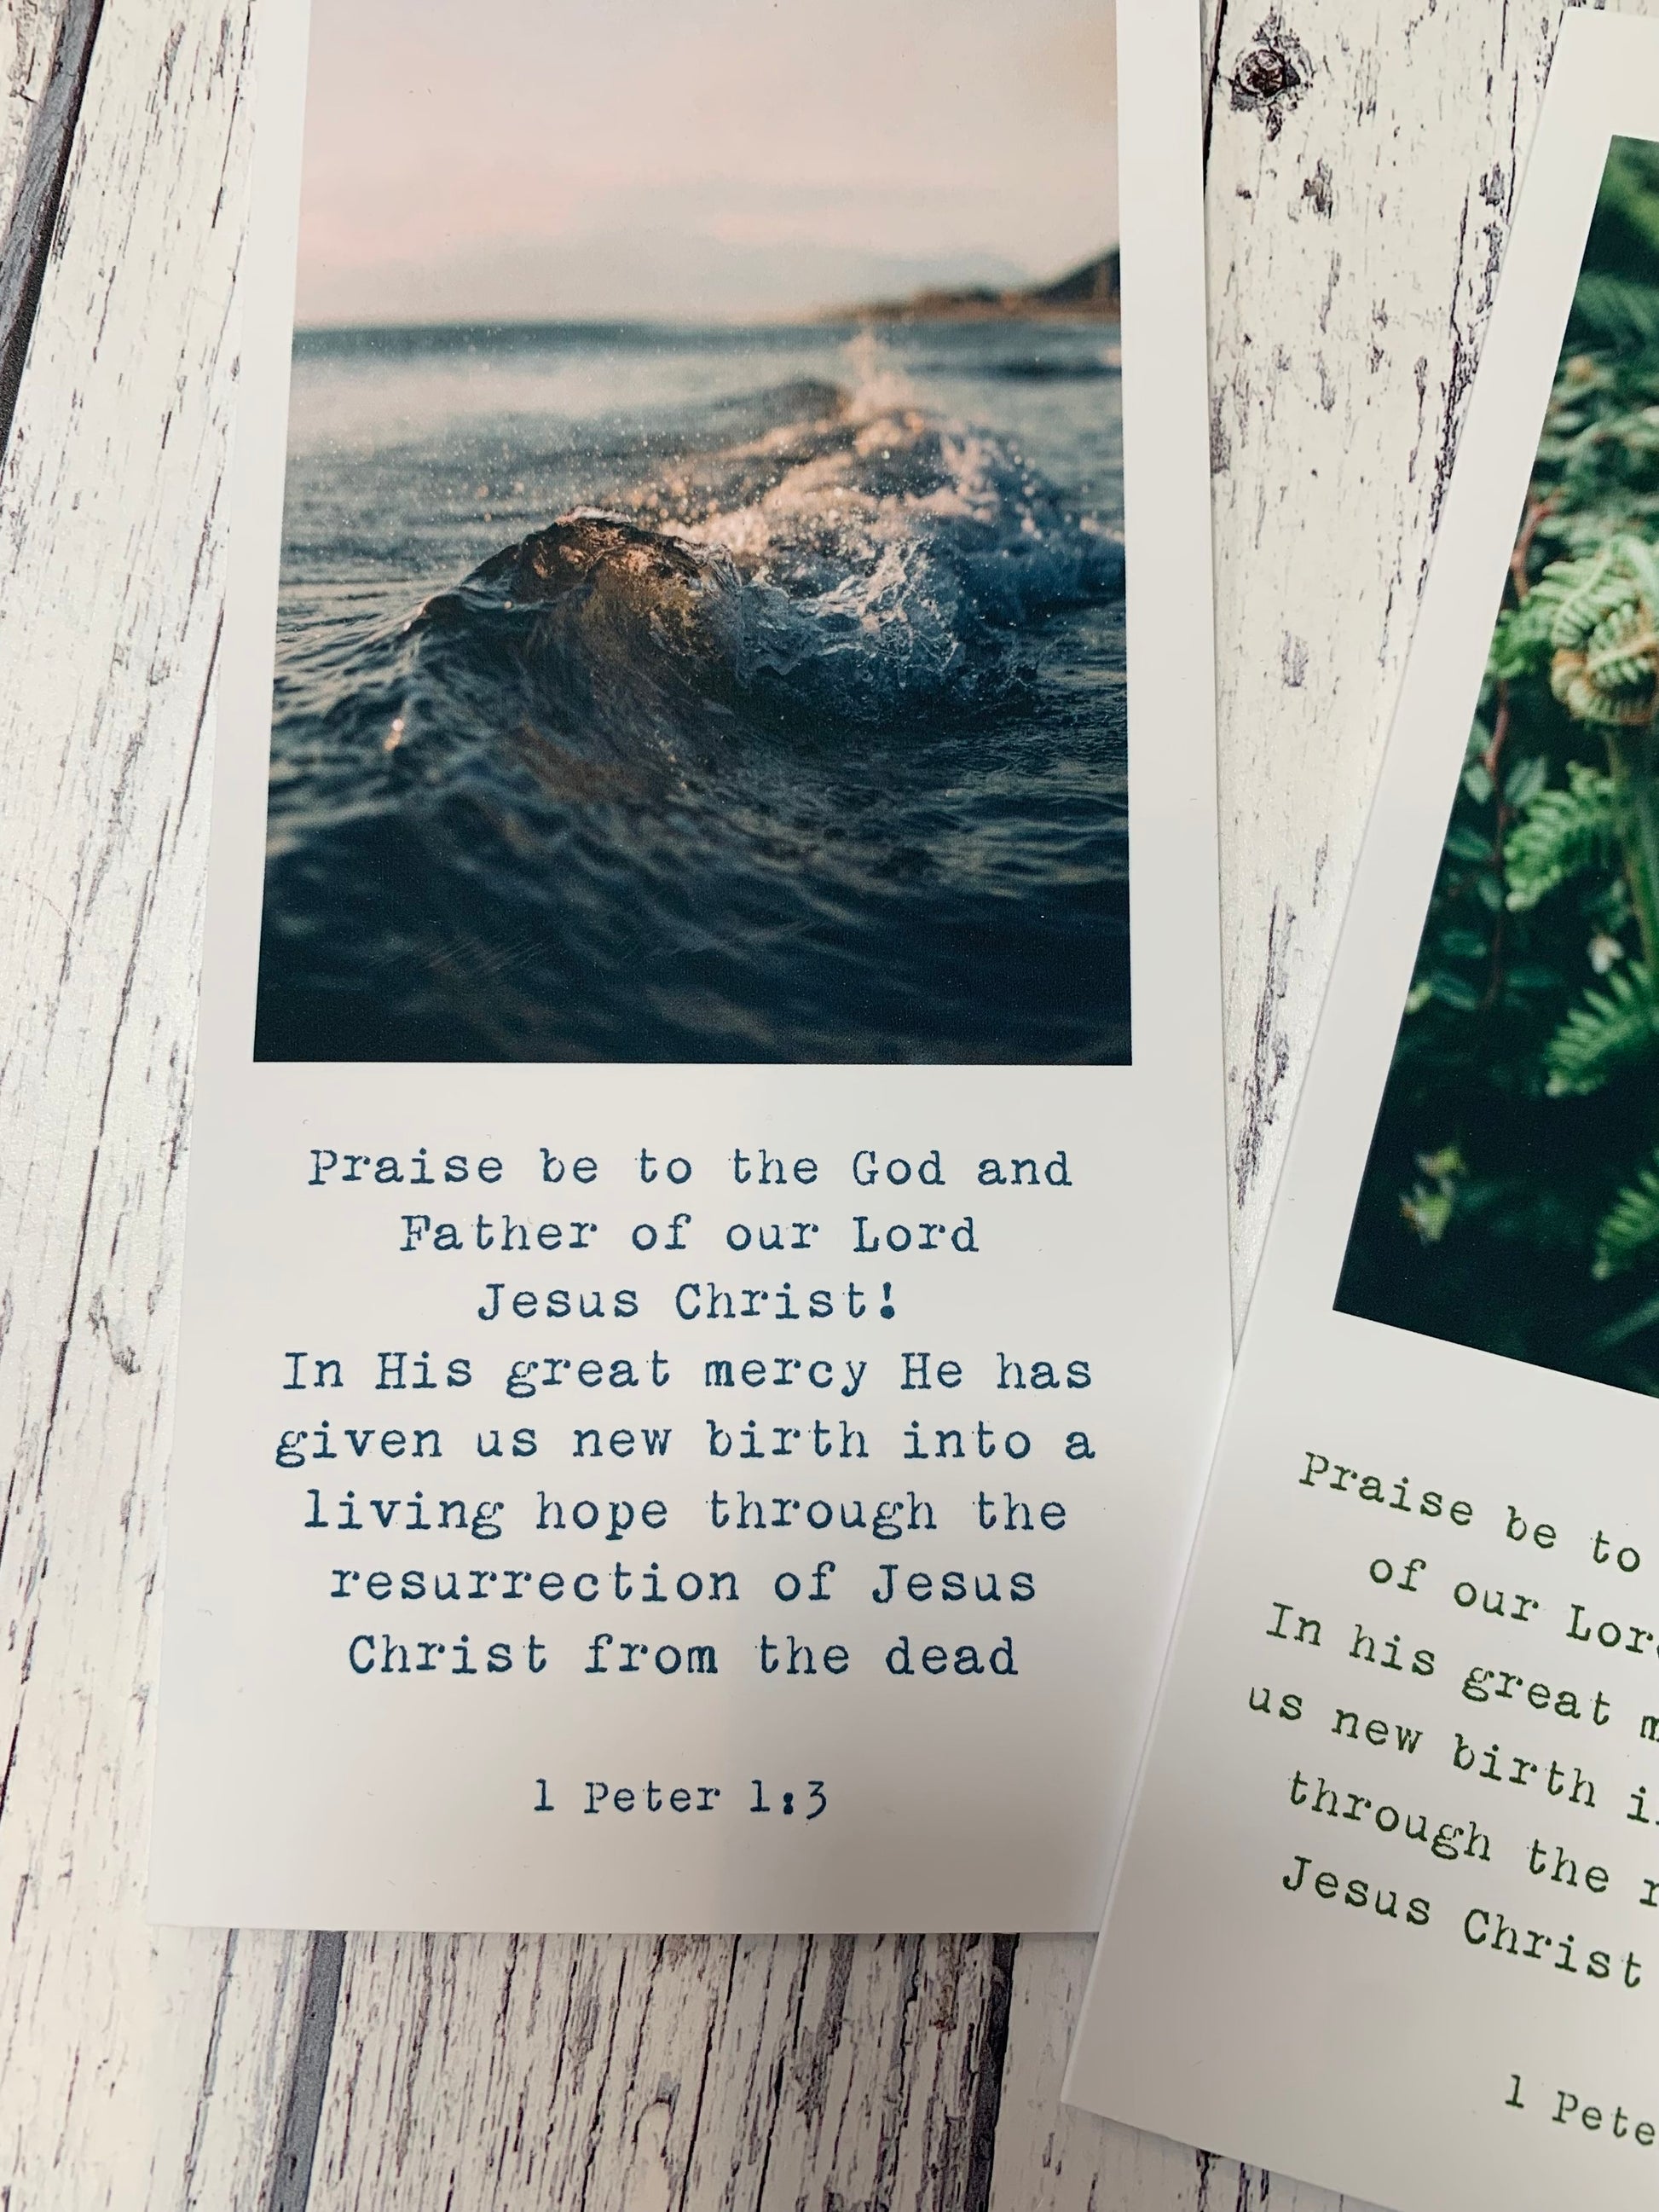 Praise be to the God and
Father of our Lord
Jesus Christ!
In His great mercy He has
given us new birth into a
living hope through the
resurrection of Jesus
Christ from the dead
1 Peter 1:3
Praise be to
of our
In his great
us new birth
through the
Jesus Christ
1